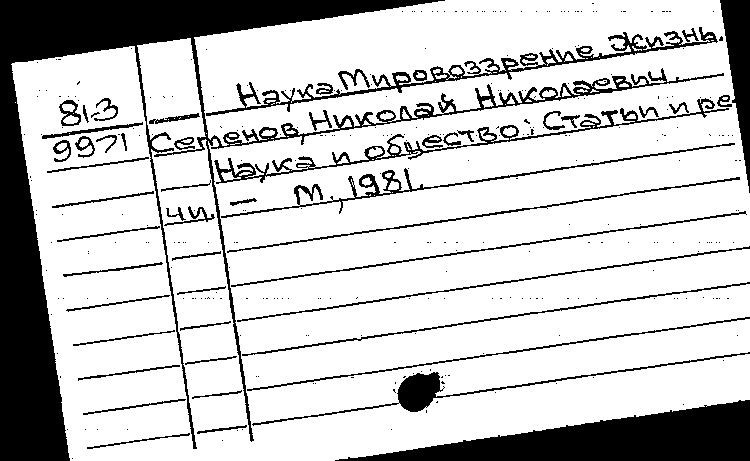 Наука. Мировоззрение. Жизнь.
81-3
9971
Семенов, Николай Николаевич.
Наука и общество: Статьи и ре-
чи. — М., 1981.